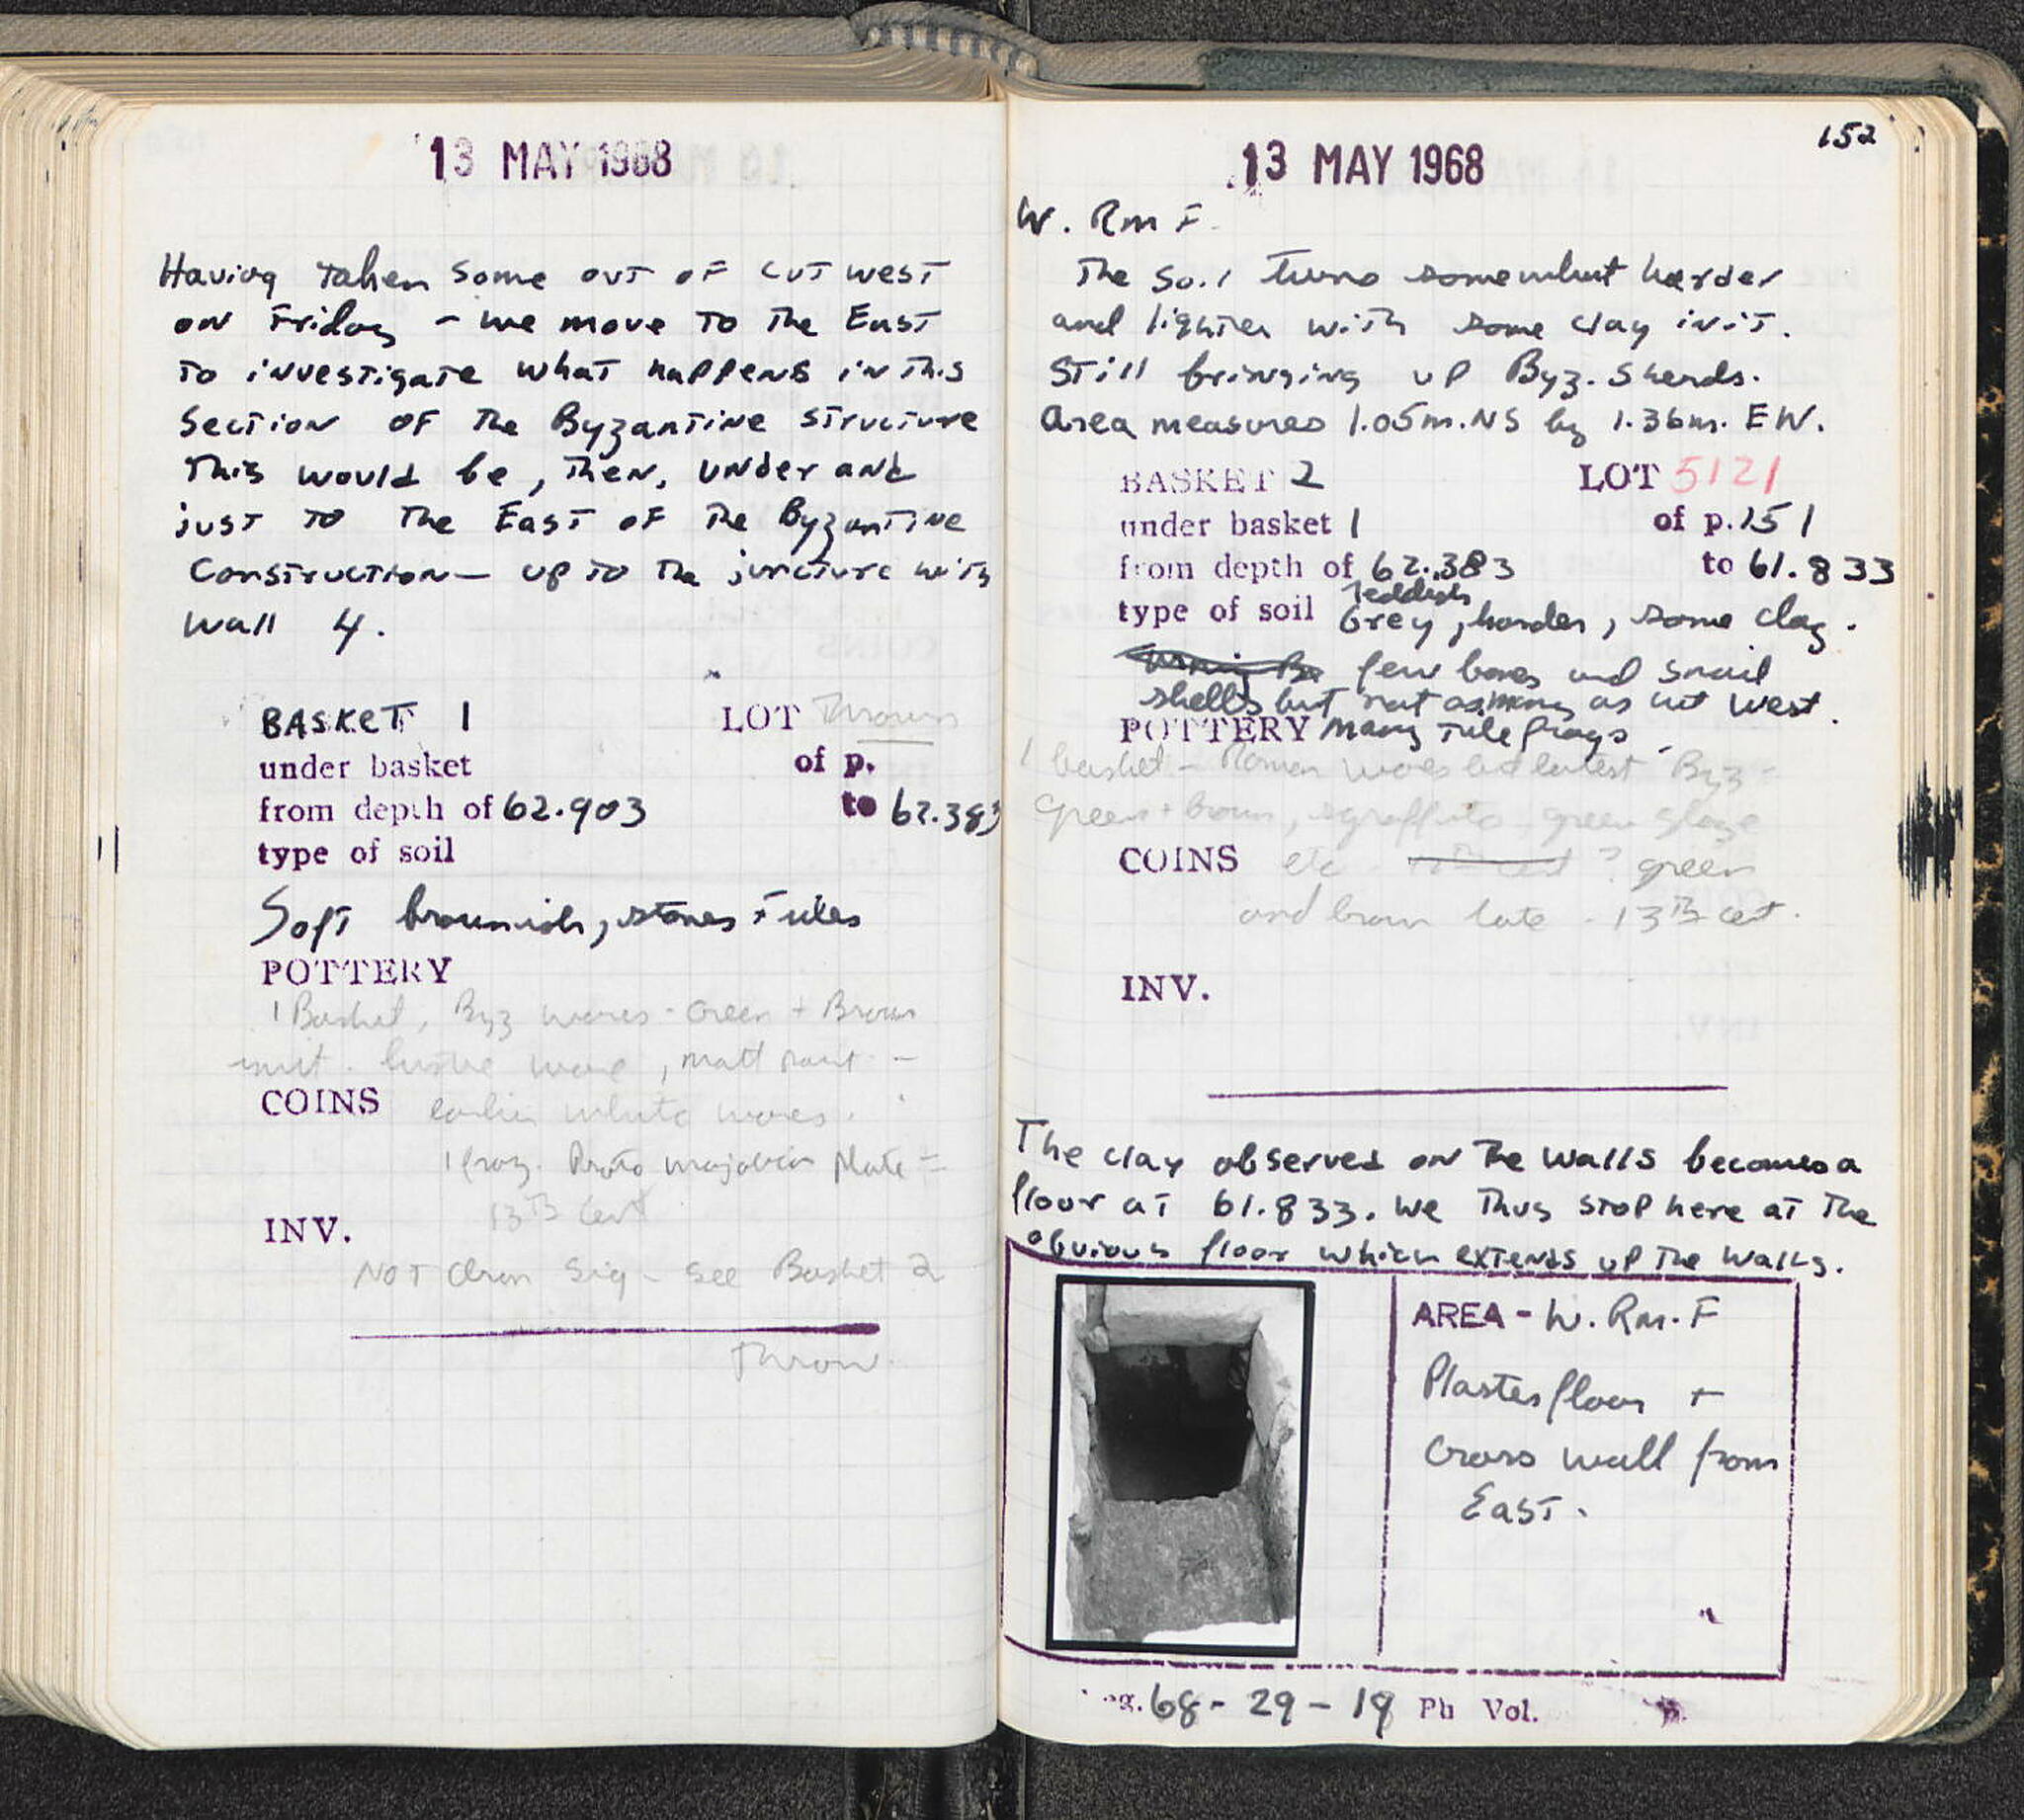 13 MAY 1968
Having taken some out of cut west
on Friday - we move to the East
to investigate what happens in this
section of the Byzantine structure
This would be, then, under and
just to the East of the Byzantine
Construction - up to the juncture with
wall 4.
BASKET 1 LOT Thrown
under basket of p.
from depth of 62.903 to 62.383
type of soil
Soft brownish, stones + tiles
POTTERY
1 Basket, Byz wares - Green + Brown
imit. lustre ware, matt paint -
COINS earlier white wares.
1 frag. Proto majolica plate =
13th cent
INV.
NOT chron sig - see Basket 2
Throw
152
13 MAY 1968
W. Rm F.
The soil turns somewhat harder
and lighter with some clay in it.
Still bringing up Byz. sherds.
Area measures 1.05m. NS by 1.36m. EW.
BASKET 2 LOT 5121
under basket 1 of p. 151
from depth of 62.383 to 61.833
reddish
type of soil Grey, harder, some clay.
few bones and snail
shells but not as many as cut west.
POTTERY Many tile frags.
1 basket - Roman wares but latest Byz -
green + brown, sgraffito, green glaze
COINS etc ? green
and brown late - 13th cent.
INV.
The clay observed on the walls becomes a
floor at 61.833. We thus stop here at the
obvious floor which extends up the walls.
AREA - W. Rm. F
Plaster floor +
cross wall from
East.
eg. 68 - 29 - 19 Ph Vol. p.